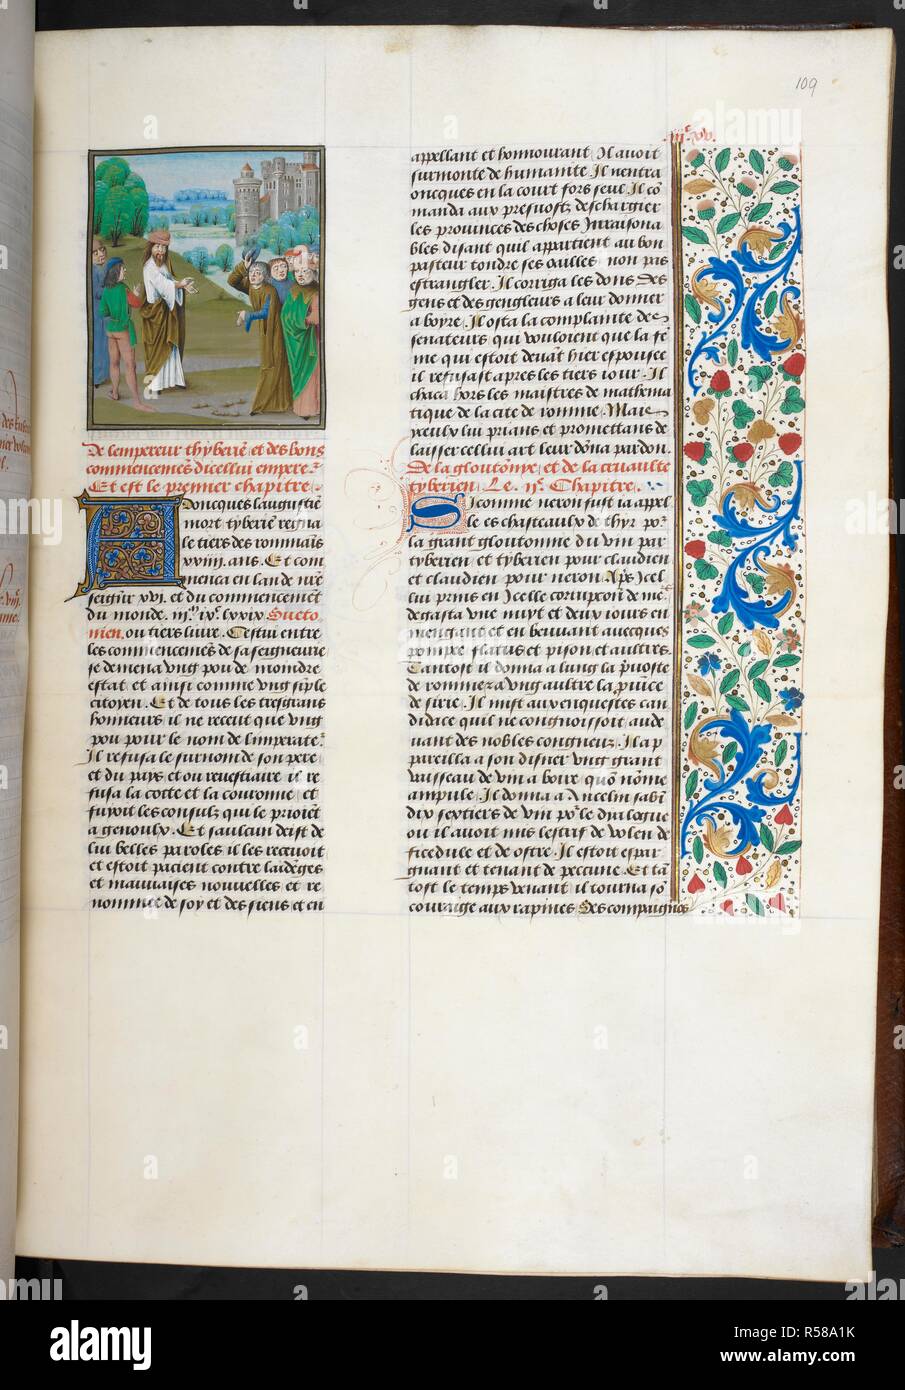 109
De lempereur thyberie et des bons
commencemens dicellui empere
Et est le premier chapitre.
Doncques laugustien
mort tyberie regna
le tiers des rommais
xviij. ans. Et com
menca en lan de nre
seigneur xvj. et du commencement
du monde. iijm. ixc. lxxix. Sueto
nien. ou tiers liure. Cestui entre
les commencemens de sa seigneurie
se demena vng pou de mondre
estat et ainsi comme vng simple
citoyen. Et de tous les tresgrans
honneurs il ne recent que vng
pou pour le nom de limperate
Il refusa le surnom de son pere
et du pays et ou reuestiaire il re
fusa la cotte et la couronne et
fuyoit les consulz qui le prioient
a genoulx. Et saulcun deist de
lui belles paroles il les receuoit
et estoit pacient contre laidenges
et mauuaises nouuelles et re
nommee de soy et des siens et en
appellant et honnourant Il auoit
surmonte de humanite. Il nentra
oncques en la court fors seul. Il co
manda aux preuostz deschargier
les prouinces des choses Irraisona
bles disant quil appartient au bon
pasteur tondre ses oailles non pas
estrangler. Il corriga les dons des
gens et des gengleurs a leur donner
a boyre. Il osta la complainte des
senateurs qui vouloient que la fe
me qui estoit deuant hier espousee
il refusast apres le tiers iour. Il
chaca hors les maistres de mathema
tique de la cite de romme. Mais
yceulx lui prians et promettans de
laisser cellui art leur dona pardon.
De la gloutonnie et de la cruaulte
tyberien. Le .ije. Chapitre.
Sicomme neron fust ia appel
le es chasteaulx de thyr por
la grant gloutonnie du vin par
tyberien et tyberien pour claudien
et claudien pour neron. Aps icel
lui prins en Icelle corupcion de me
degasta vne nuyt et deux iours en
mengant et en beuuant auecques
pompe flatus et pison et aultres.
Tantost il donna a lung la puoste
de romme et a vng aultre la puice
de sirie. Il mist aux enquestes can
didace quil ne congnoissoit au de
uant des nobles congneuz. Il ap
pareilla a son disner vng grant
vaisseau de vin a boire quon nome
ampule. Il donna a Ancelin sabin
dix sextiers de vin por le dyalogue
ou il auoit mis lestrif de bolen de
ficedule et de ostre. Il estoit espar
gnant et tenant de pecune. Et tan
tost le temps venant il tourna son
couraige aux rapines Des compaignos
alamy
Image ID: R58A1K
www.alamy.com